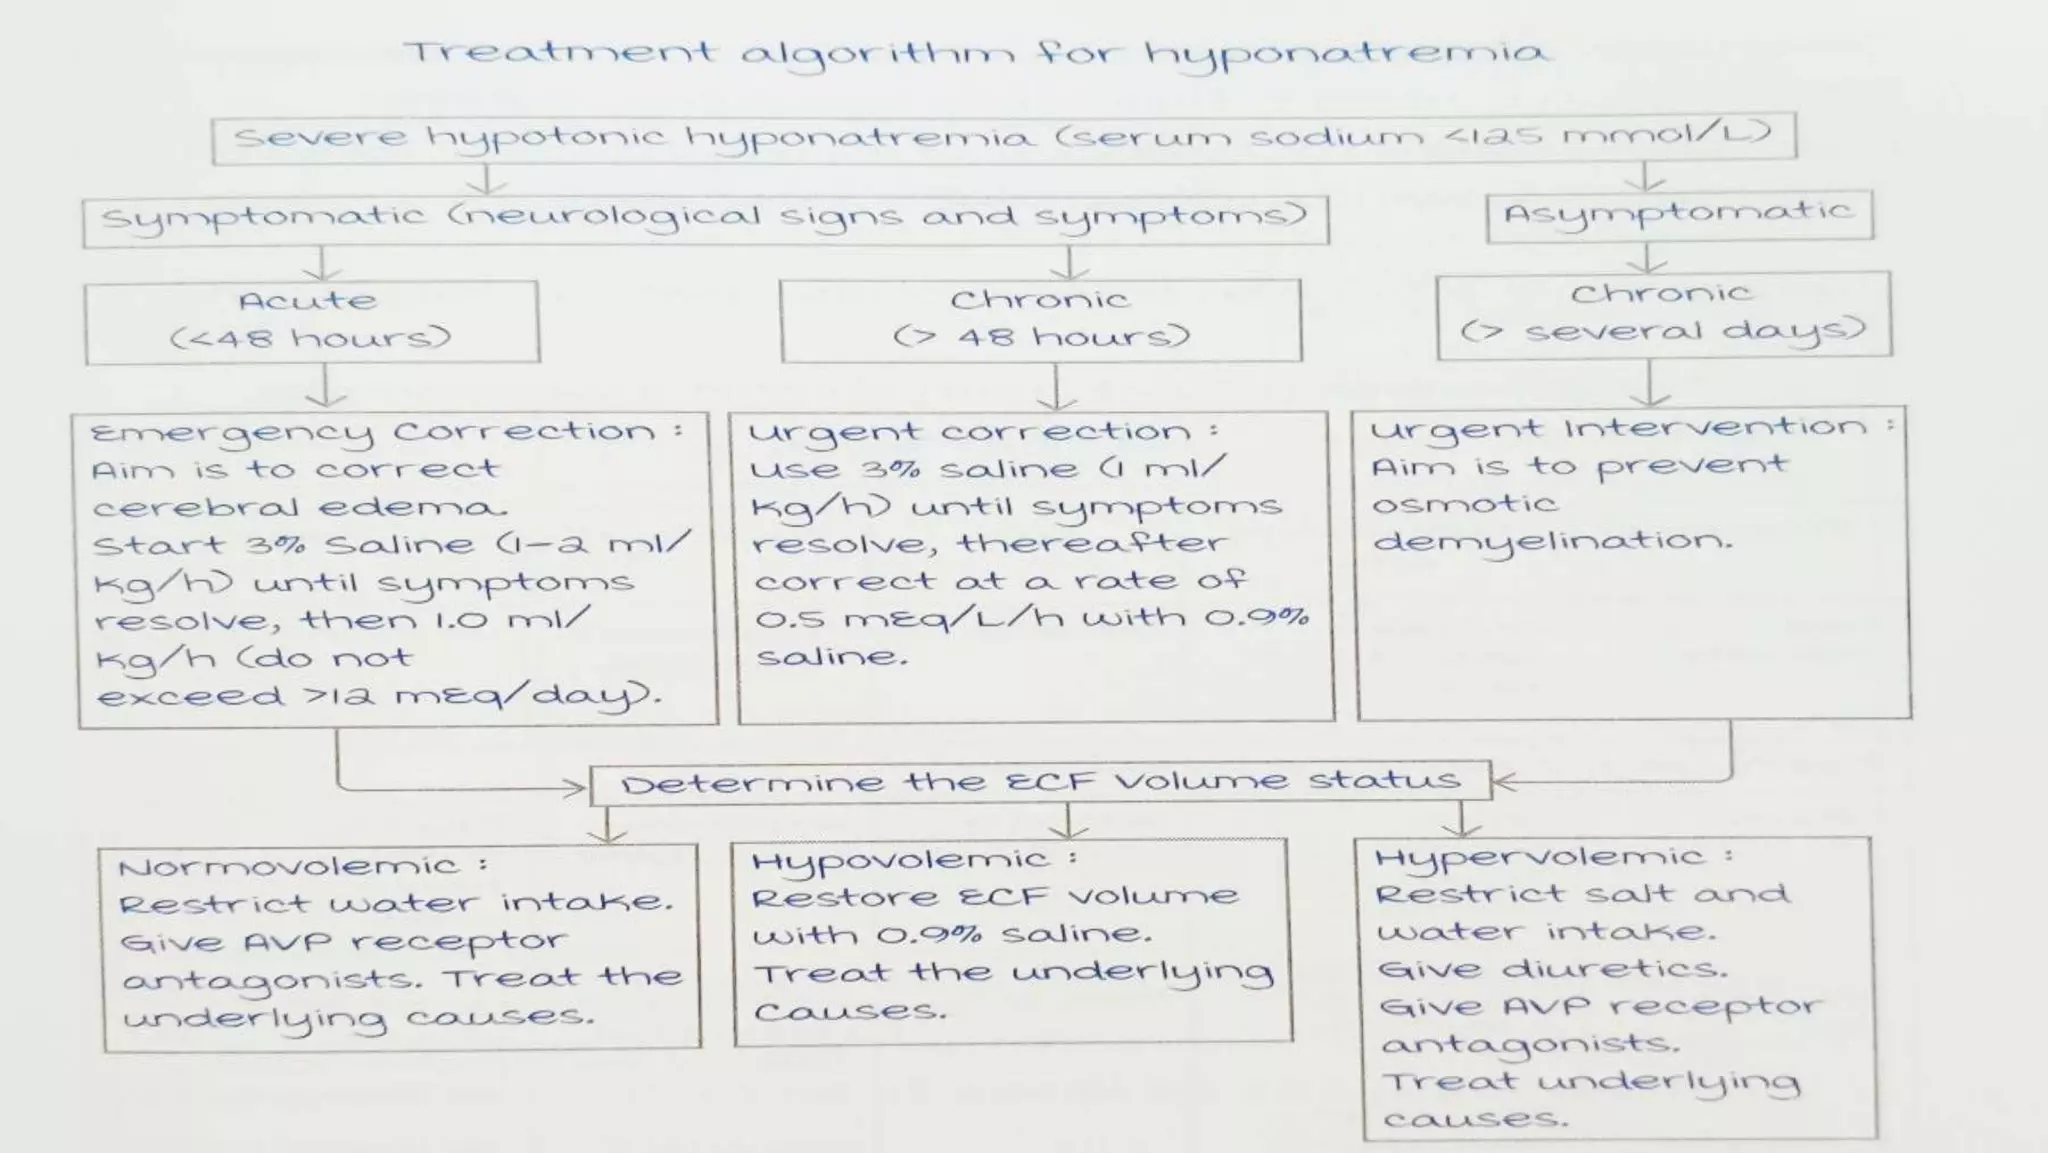 Treatment algorithm for hyponatremia
Severe hypotonic hyponatremia (serum sodium <125 mmol/L)
Symptomatic (neurological signs and symptoms)
Asymptomatic
Acute
(<48 hours)
Chronic
(> 48 hours)
Chronic
(> several days)
Emergency Correction :
Aim is to correct
cerebral edema.
Start 3% Saline (1-2 ml/
kg/h) until symptoms
resolve, then 1.0 ml/
kg/h (do not
exceed >12 mEq/day).
Urgent correction :
Use 3% saline (1 ml/
kg/h) until symptoms
resolve, thereafter
correct at a rate of
0.5 mEq/L/h with 0.9%
saline.
Urgent Intervention :
Aim is to prevent
osmotic
demyelination.
Determine the ECF Volume status
Normovolemic :
Restrict water intake.
Give AVP receptor
antagonists. Treat the
underlying causes.
Hypovolemic :
Restore ECF volume
with 0.9% saline.
Treat the underlying
causes.
Hypervolemic :
Restrict salt and
water intake.
Give diuretics.
Give AVP receptor
antagonists.
Treat underlying
causes.